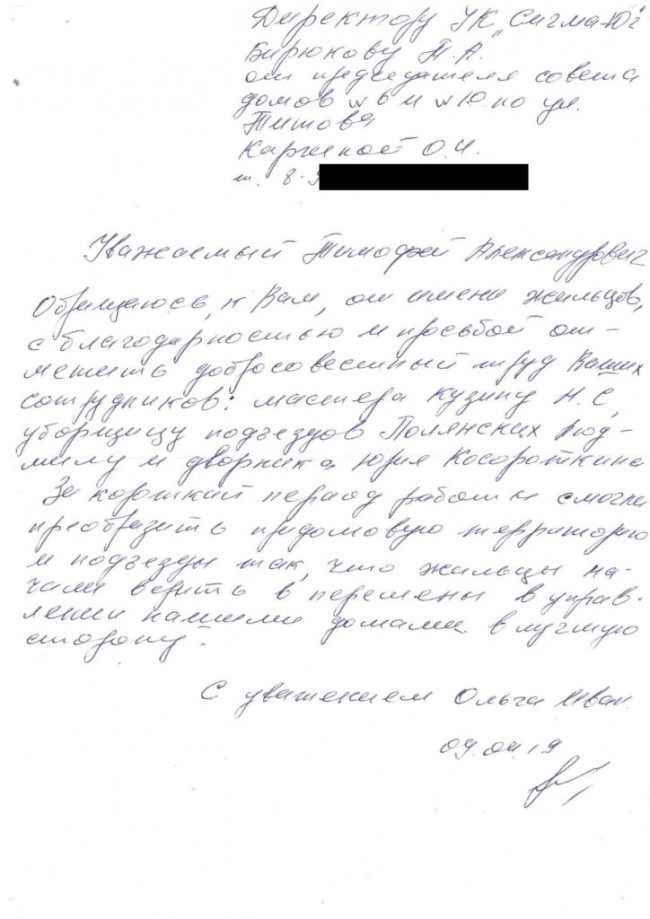 Директору УК „Сигма-Юг"
Бирюкову Т.А.
от председателя совета
домов №6 и №10 по ул.
Титова
О.И.
т. 8-9
Уважаемый Тимофей Александрович
Обращаюсь к Вам, от имени жильцов,
с благодарностью и просьбой от-
метить добросовестный труд Ваших
сотрудников: мастера Кузину Н.С,
уборщицу подъездов Полянских Люд-
милу и дворника Юрия Косороткина
За короткий период работы смогли
преобразить придомовую территорию
и подъезды так, что жильцы на-
чали верить в перемены в управ-
лении нашими домами в лучшую
сторону.
С уважением Ольга Иван.
09.04.19